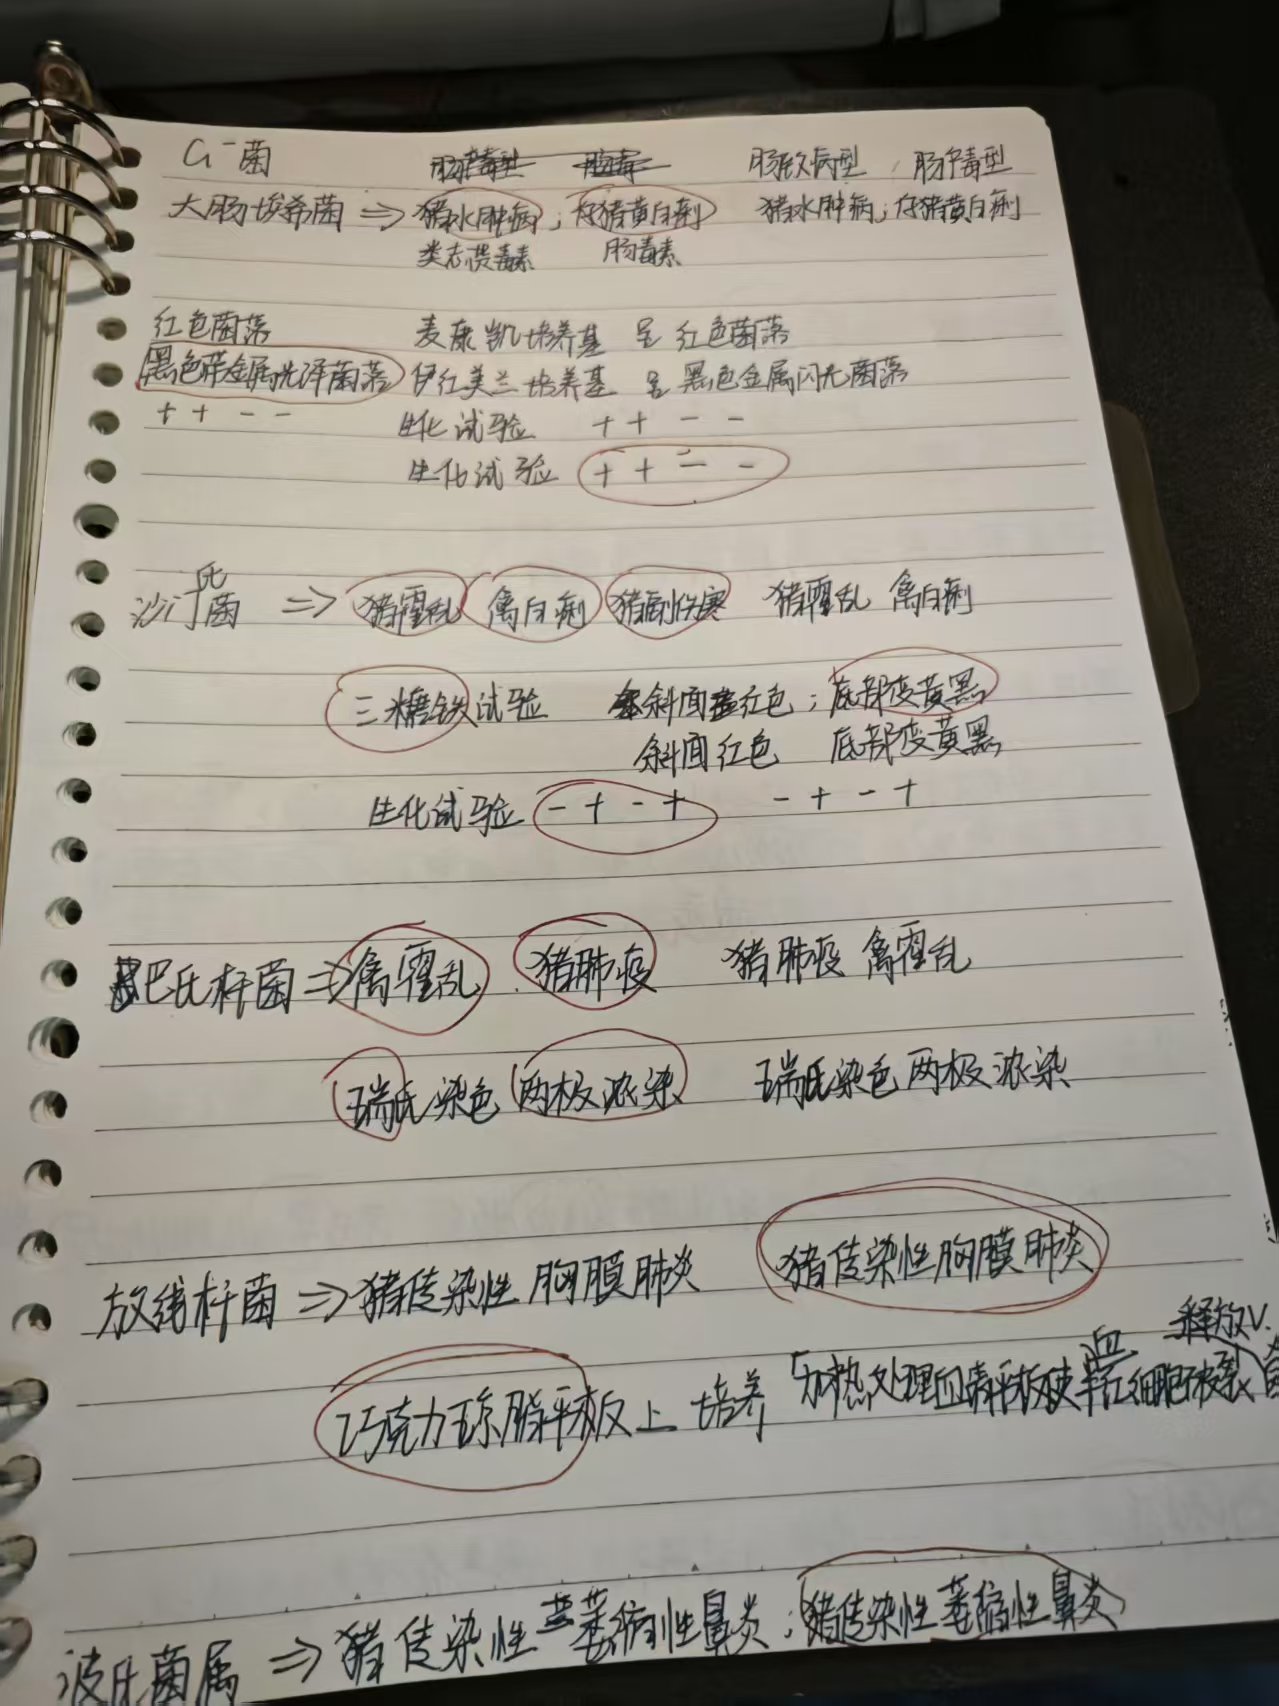 G⁻菌 肠毒型 肠毒 肠致病型，肠毒型
大肠埃希菌 ⇒ 猪水肿病；仔猪黄白痢 猪水肿病；仔猪黄白痢
类志贺毒素 肠毒素
红色菌落 麦康凯培养基 呈 红色菌落
黑色带金属光泽菌落 伊红美兰培养基 呈 黑色金属闪光菌落
+ + - - 生化试验 + + - -
生化试验 + + - -
沙门氏菌 ⇒ 猪霍乱 禽白痢 猪副伤寒 猪霍乱 禽白痢
三糖铁试验 斜面红色；底部变黄黑
斜面红色 底部变黄黑
生化试验 - + - + - + - +
巴氏杆菌 ⇒ 禽霍乱 猪肺疫 猪肺疫 禽霍乱
瑞氏染色 两极浓染 瑞氏染色两极浓染
放线杆菌 ⇒ 猪传染性胸膜肺炎 猪传染性胸膜肺炎
释放V.
巧克力琼脂平板上 培养「加热处理血清平板使血红细胞破裂
波氏菌属 ⇒ 猪传染性萎缩性鼻炎；猪传染性萎缩性鼻炎